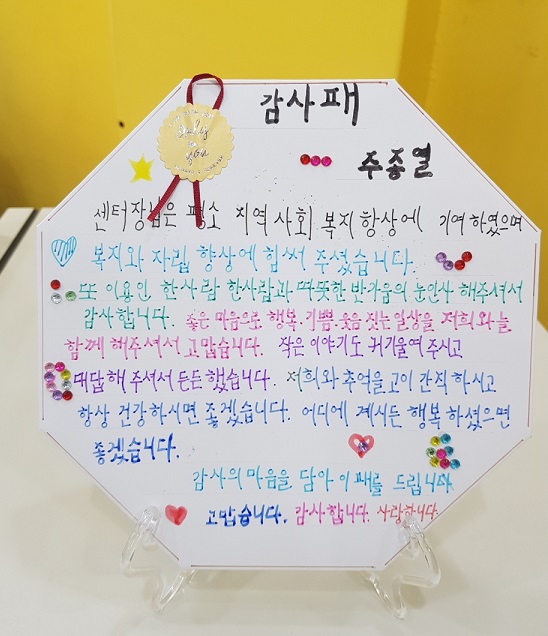 감사패
주종열
센터장님은 평소 지역사회 복지향상에 기여하였으며
복지와 자립 향상에 힘써 주셨습니다.
또 이용인, 한사람 한사람과 따뜻한 반가움의 눈인사 해주셔서
감사합니다. 좋은 마음으로 행복.기쁨.웃음 짓는 일상을 저희와 늘
함께 해주셔서 고맙습니다. 작은 이야기도 귀 기울여 주시고
대답해 주셔서 든든했습니다. 저희와 추억을 고이 간직하시고
항상 건강하시면 좋겠습니다. 어디에 계시든 행복하셨으면
좋겠습니다.
감사의 마음을 담아 이 패를 드립니다
고맙습니다. 감사합니다. 사랑합니다.